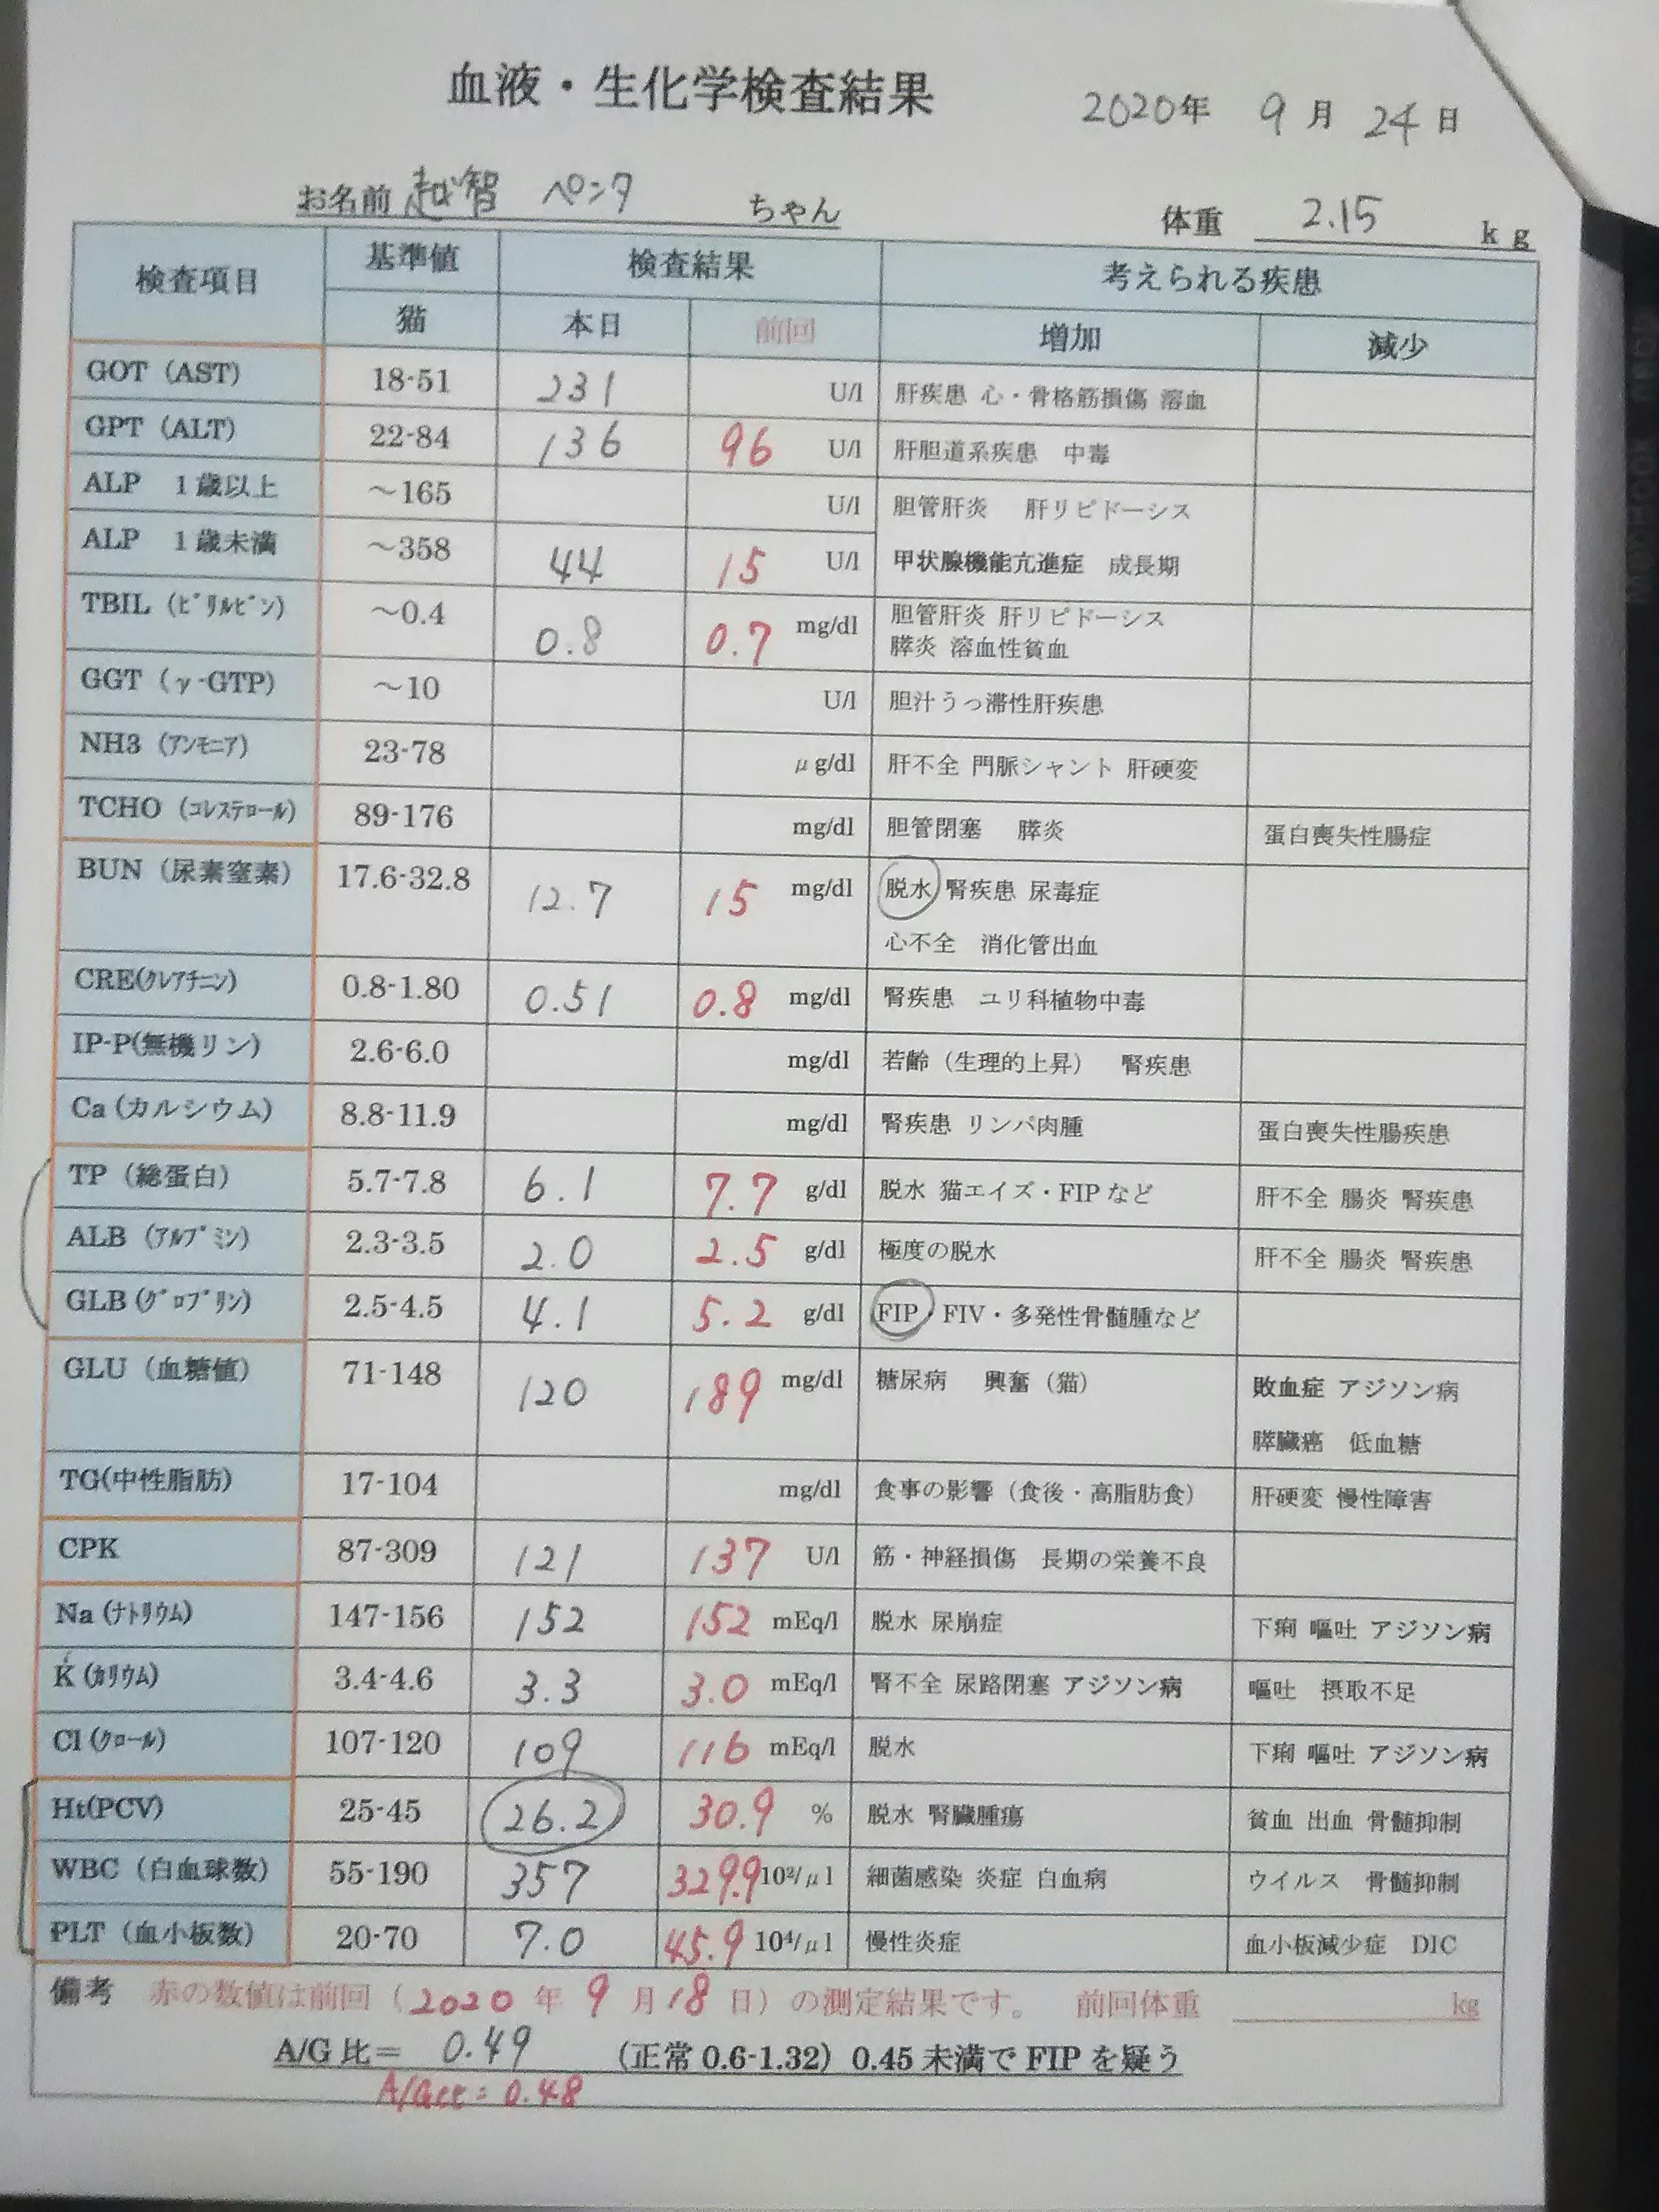 血液・生化学検査結果
2020年 9月 24日
お名前 越智 ペンタ ちゃん 体重 2.15 kg
検査項目 基準値 検査結果 考えられる疾患
猫 本日 前回 増加 減少
GOT (AST) 18-51 231 U/l 肝疾患 心・骨格筋損傷 溶血
GPT (ALT) 22-84 136 96 U/l 肝胆道系疾患 中毒
ALP 1歳以上 ～165 U/l 胆管肝炎 肝リピドーシス
ALP 1歳未満 ～358 44 15 U/l 甲状腺機能亢進症 成長期
TBIL (ﾋﾞﾘﾙﾋﾞﾝ) ～0.4 0.8 0.7 mg/dl 胆管肝炎 肝リピドーシス
膵炎 溶血性貧血
GGT (γ-GTP) ～10 U/l 胆汁うっ滞性肝疾患
NH3 (ｱﾝﾓﾆｱ) 23-78 μg/dl 肝不全 門脈シャント 肝硬変
TCHO (ｺﾚｽﾃﾛｰﾙ) 89-176 mg/dl 胆管閉塞 膵炎 蛋白喪失性腸症
BUN (尿素窒素) 17.6-32.8 12.7 15 mg/dl 脱水 腎疾患 尿毒症
心不全 消化管出血
CRE(ｸﾚｱﾁﾆﾝ) 0.8-1.80 0.51 0.8 mg/dl 腎疾患 ユリ科植物中毒
IP-P(無機リン) 2.6-6.0 mg/dl 若齢（生理的上昇） 腎疾患
Ca (カルシウム) 8.8-11.9 mg/dl 腎疾患 リンパ肉腫 蛋白喪失性腸疾患
TP (総蛋白) 5.7-7.8 6.1 7.7 g/dl 脱水 猫エイズ・FIPなど 肝不全 腸炎 腎疾患
ALB (ｱﾙﾌﾞﾐﾝ) 2.3-3.5 2.0 2.5 g/dl 極度の脱水 肝不全 腸炎 腎疾患
GLB (ｸﾞﾛﾌﾞﾘﾝ) 2.5-4.5 4.1 5.2 g/dl FIP FIV・多発性骨髄腫など
GLU (血糖値) 71-148 120 189 mg/dl 糖尿病 興奮（猫） 敗血症 アジソン病
膵臓癌 低血糖
TG(中性脂肪) 17-104 mg/dl 食事の影響（食後・高脂肪食） 肝硬変 慢性障害
CPK 87-309 121 137 U/l 筋・神経損傷 長期の栄養不良
Na (ﾅﾄﾘｳﾑ) 147-156 152 152 mEq/l 脱水 尿崩症 下痢 嘔吐 アジソン病
K (ｶﾘｳﾑ) 3.4-4.6 3.3 3.0 mEq/l 腎不全 尿路閉塞 アジソン病 嘔吐 摂取不足
Cl (ｸﾛｰﾙ) 107-120 109 116 mEq/l 脱水 下痢 嘔吐 アジソン病
Ht(PCV) 25-45 26.2 30.9 % 脱水 腎臓腫瘍 貧血 出血 骨髄抑制
WBC (白血球数) 55-190 357 329.9 10²/μl 細菌感染 炎症 白血病 ウイルス 骨髄抑制
PLT (血小板数) 20-70 7.0 45.9 10⁴/μl 慢性炎症 血小板減少症 DIC
備考 赤の数値は前回（2020年 9月 18日）の測定結果です。 前回体重 kg
A/G比＝ 0.49 （正常 0.6-1.32）0.45未満でFIPを疑う
A/G比= 0.48